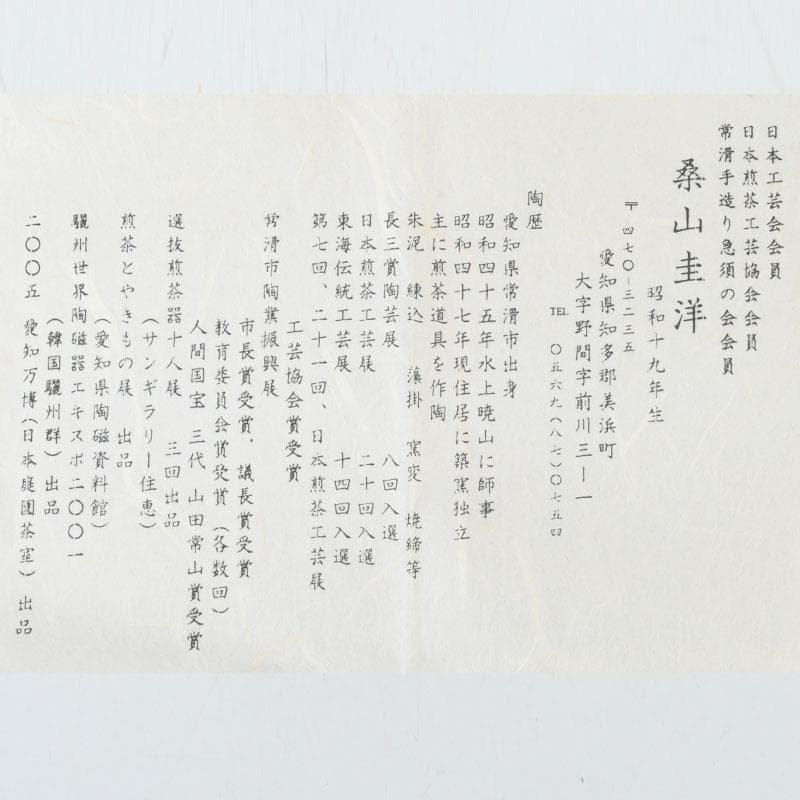 日本工芸会会員
日本煎茶工芸協会会員
常滑手造り急須の会会員
桑山圭洋
昭和十九年生
〒四七〇－三二三五
愛知県知多郡美浜町
大字野間字前川三－一
TEL 〇五六九(八七)〇七五四
陶歴
愛知県常滑市出身
昭和四十五年水上暁山に師事
昭和四十七年現住居に築窯独立
主に煎茶道具を作陶
朱泥 練込 藻掛 窯変 焼締等
長三賞陶芸展 八回入選
日本煎茶工芸展 二十回入選
東海伝統工芸展 十四回入選
第七回、二十一回、日本煎茶工芸展
工芸協会賞受賞
常滑市陶業振興展
市長賞受賞．議長賞受賞
教育委員会賞受賞(各数回)
人間国宝 三代 山田常山賞受賞
選抜煎茶器十人展 三回出品
(サンギラリー住恵)
煎茶とやきもの展 出品
(愛知県陶磁資料館)
驪州世界陶磁器エキスポ二〇〇一
(韓国驪州群) 出品
二〇〇五 愛知万博(日本庭園茶室) 出品